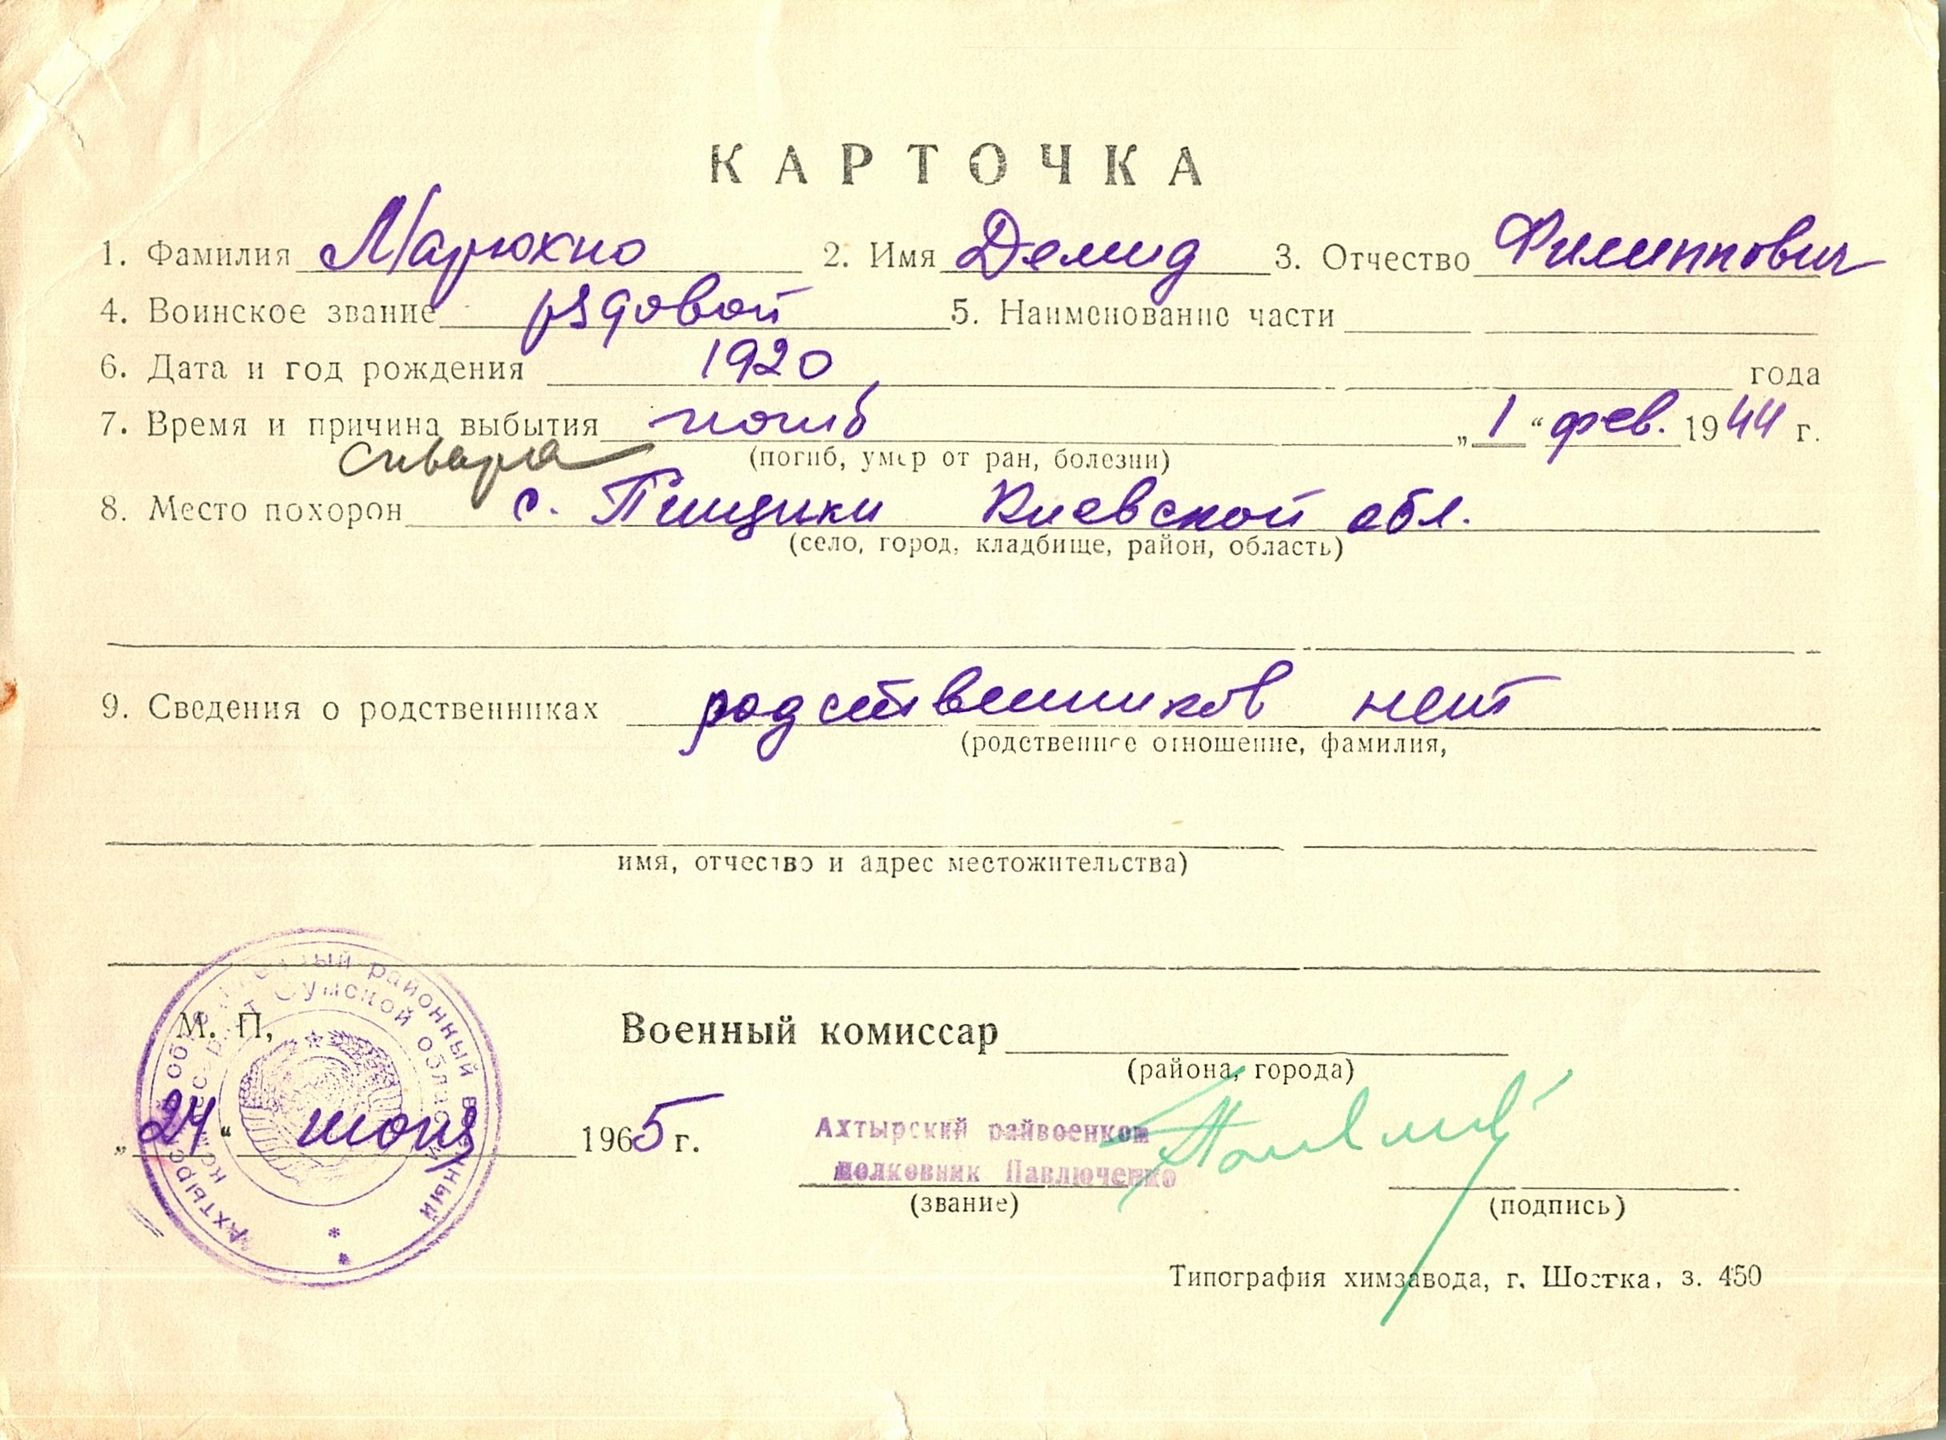 КАРТОЧКА
1. Фамилия Марюхно 2. Имя Демид 3. Отчество Филиппович
4. Воинское звание рядовой 5. Наименование части
6. Дата и год рождения 1920 года
7. Время и причина выбытия погиб „1“ фев. 1944 г.
(погиб, умер от ран, болезни)
8. Место похорон с. Пищики Киевской обл.
(село, город, кладбище, район, область)
9. Сведения о родственниках родственников нет
(родственное отношение, фамилия,
имя, отчество и адрес местожительства)
М. П,
Военный комиссар
(района, города)
„24“ июня 1965 г.
Ахтырский райвоенком
полковник Павлюченко
(звание)
(подпись)
Типография химзавода, г. Шостка, з. 450
районный военный
Сумской области